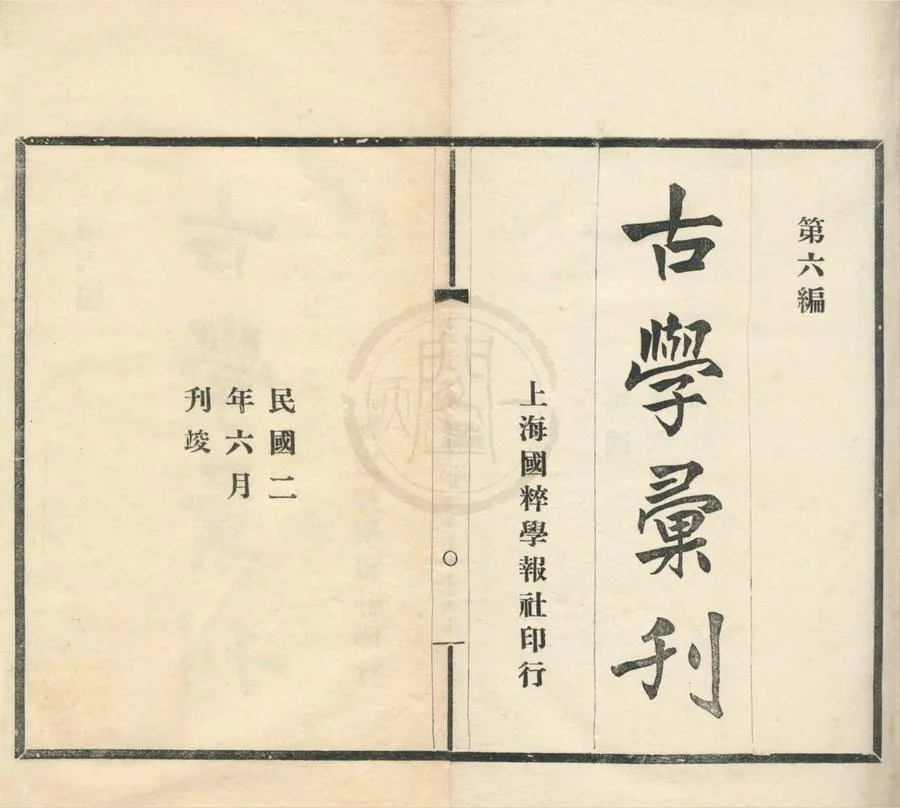 第六編
古學彙刊
上海國粹學報社印行
民國二
年六月
刊竣